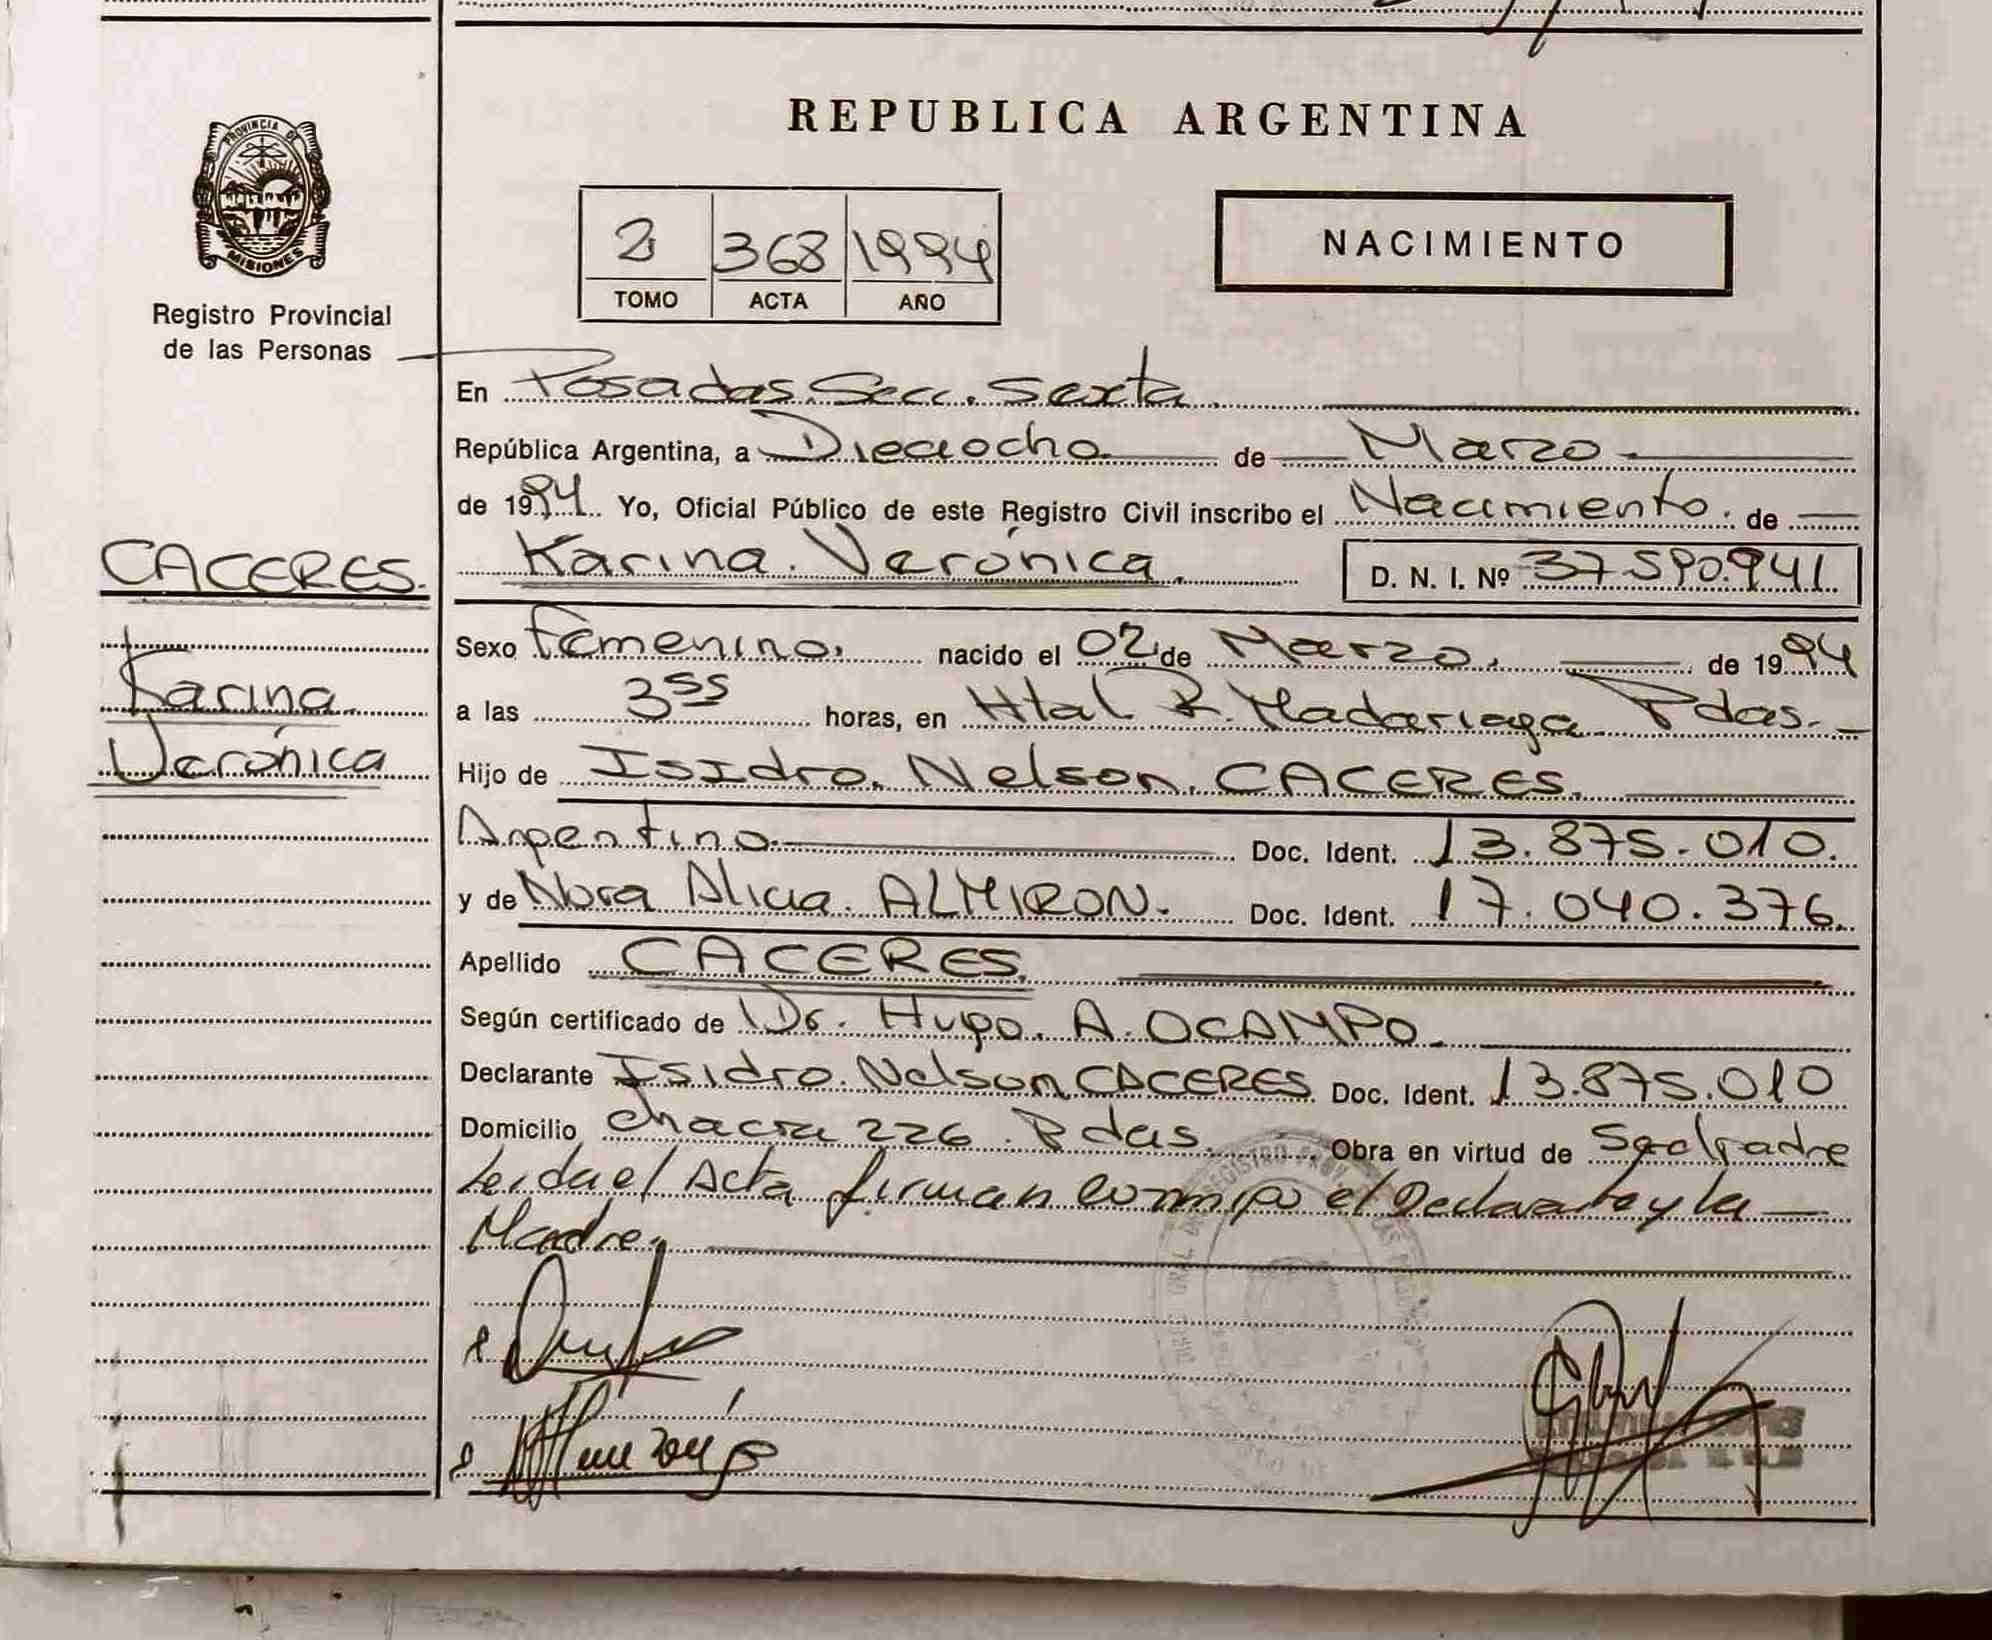 REPUBLICA ARGENTINA
PROVINCIA DE
MISIONES
Registro Provincial
de las Personas
2 368 1994
TOMO ACTA AÑO
NACIMIENTO
En Posadas. Secc. Sexta.
República Argentina, a Dieciocho de Marzo
de 1994. Yo, Oficial Público de este Registro Civil inscribo el Nacimiento. de
CACERES.
Karina. Verónica. D. N. I. Nº 37.590.941.
Karina.
Verónica
Sexo femenino. nacido el 02 de Marzo. de 1994
a las 3 55 horas, en Htal R. Madariaga Pdas.
Hijo de Isidro. Nelson. CACERES.
Argentino Doc. Ident. 13.875.010.
y de Nora Alicia. ALMIRON. Doc. Ident. 17.040.376.
Apellido CACERES.
Según certificado de Dr. Hugo. A. OCAMPO.
Declarante Isidro. Nelson CACERES Doc. Ident. 13.875.010
Domicilio chacra 226. Pdas. Obra en virtud de padre
Leida el Acta firman conmigo el Declarante y la
Madre.